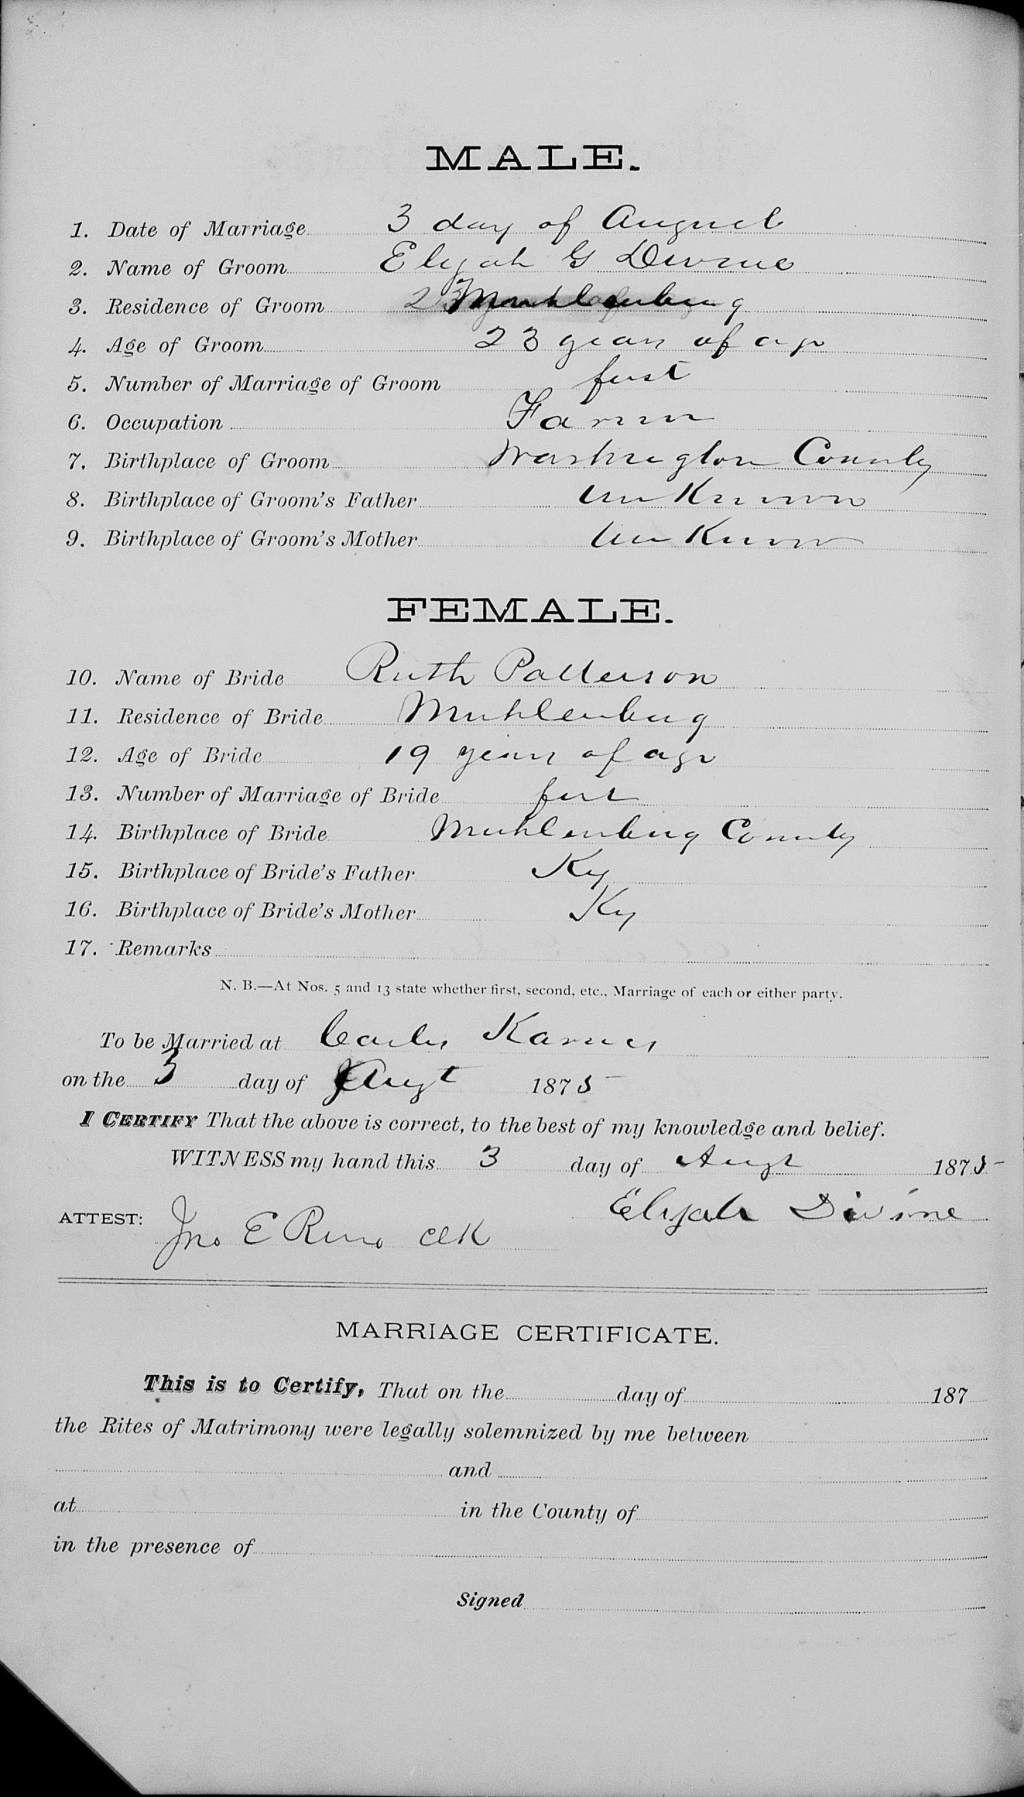 MALE.
1. Date of Marriage 3 day of August
2. Name of Groom Elijah G Divine
3. Residence of Groom Muhlenburg
4. Age of Groom 23 years of age
5. Number of Marriage of Groom first
6. Occupation Farmer
7. Birthplace of Groom Washington County
8. Birthplace of Groom's Father Unknown
9. Birthplace of Groom's Mother Unknown
FEMALE.
10. Name of Bride Ruth Patterson
11. Residence of Bride Muhlenburg
12. Age of Bride 19 years of age
13. Number of Marriage of Bride first
14. Birthplace of Bride Muhlenburg County
15. Birthplace of Bride's Father Ky
16. Birthplace of Bride's Mother Ky
17. Remarks
N. B.—At Nos. 5 and 13 state whether first, second, etc., Marriage of each or either party.
To be Married at
on the 3 day of Augt 1875
I CERTIFY That the above is correct, to the best of my knowledge and belief.
WITNESS my hand this 3 day of Augt 1875
Elijah Divine
ATTEST: Jno E Reno clk
MARRIAGE CERTIFICATE.
This is to Certify, That on the day of 187
the Rites of Matrimony were legally solemnized by me between
and
at in the County of
in the presence of
Signed